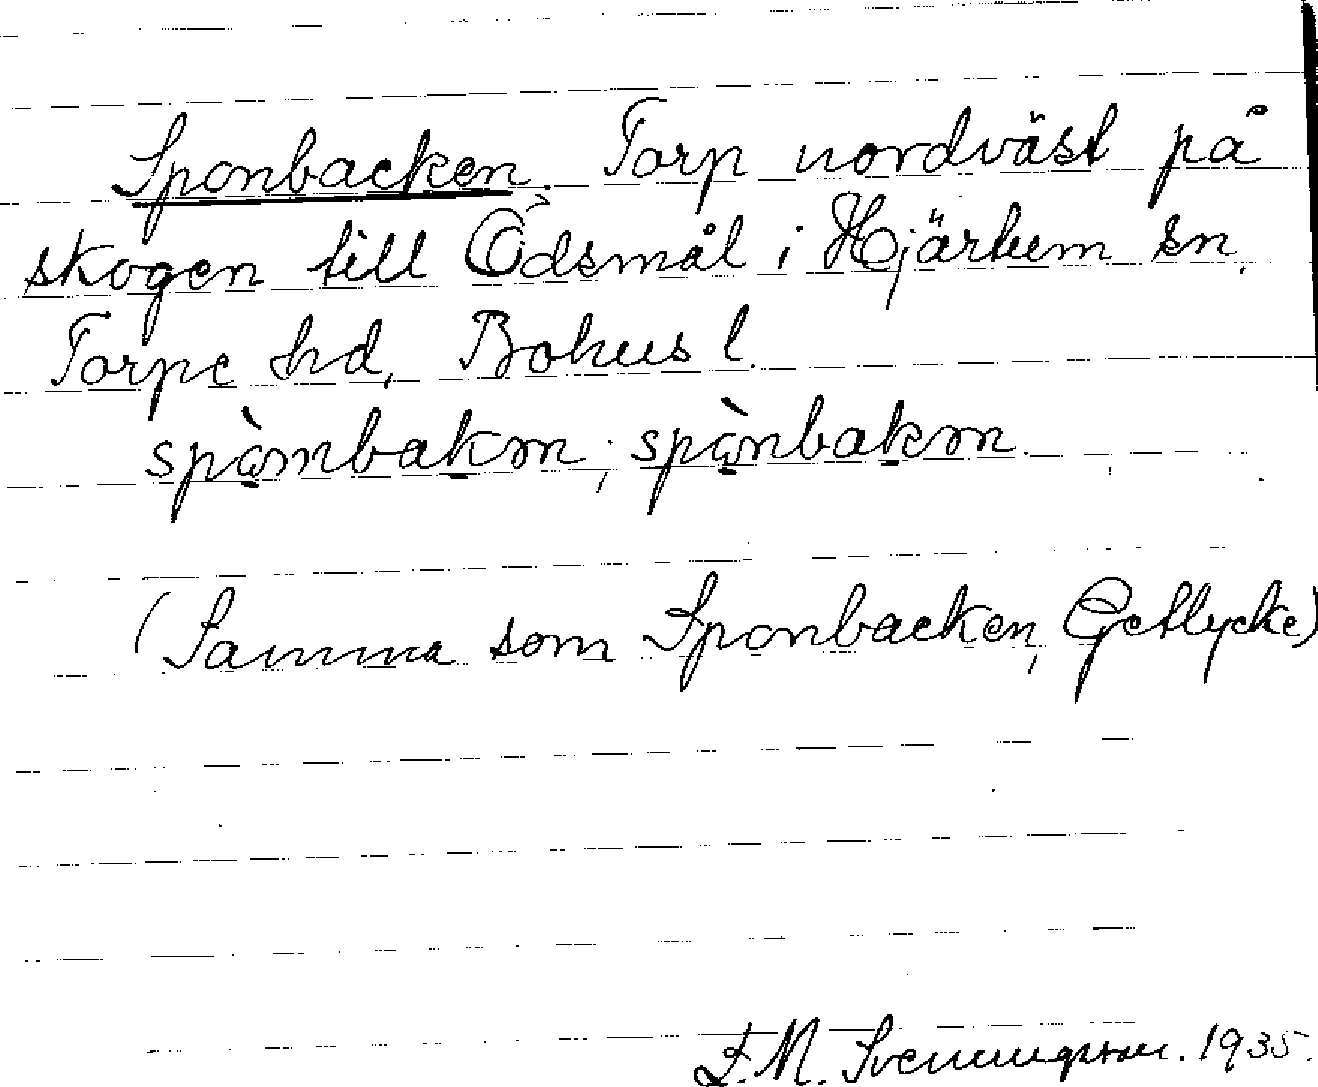 Sponbacken. Torp nordväst på
skogen till Ödsmål i Hjärtum sn,
Torpe hd, Bohus l.
spà̱mbakm; spà̱nbakm
(Samma som Sponbacken, Getlycke)
F. M. Svenningsson. 1935.